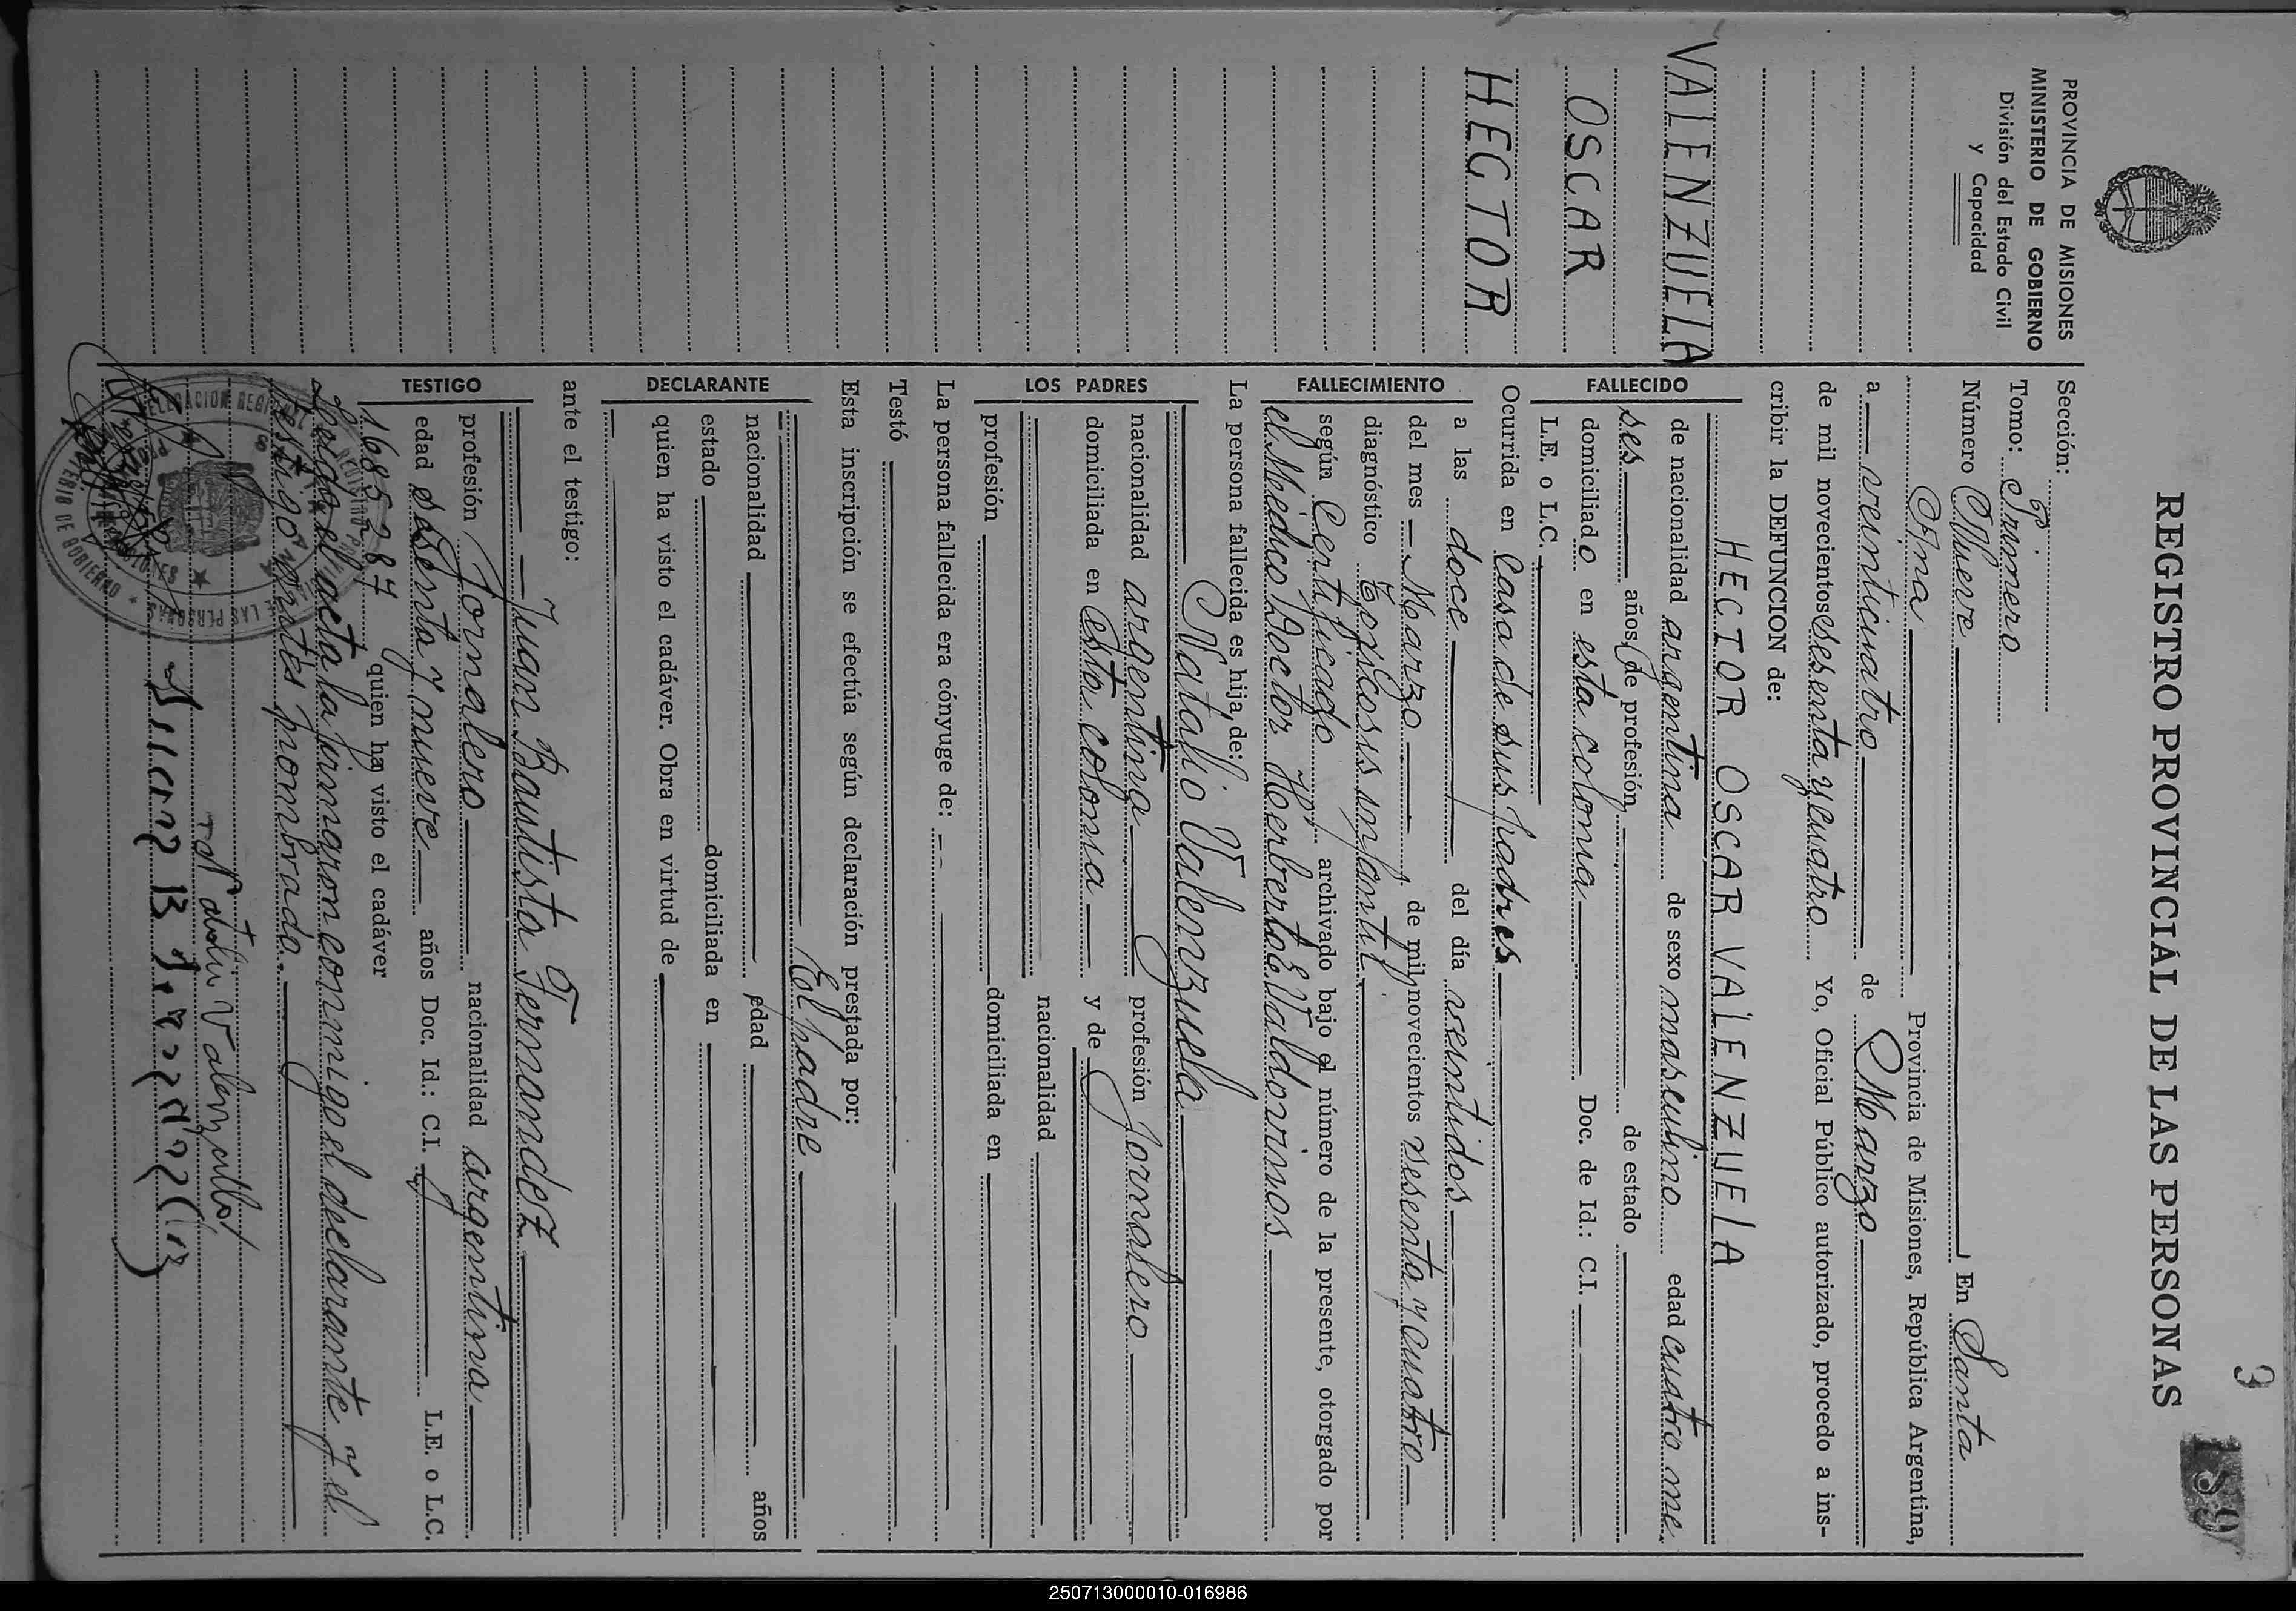 3
189
REGISTRO PROVINCIAL DE LAS PERSONAS
PROVINCIA DE MISIONES
MINISTERIO DE GOBIERNO
División del Estado Civil
y Capacidad
VALENZUELA
OSCAR
HECTOR
Sección:
Tomo: Primero
Número Nueve En Santa
Ana Provincia de Misiones, República Argentina,
a veinticuatro de Marzo
de mil novecientos sesenta y cuatro Yo, Oficial Público autorizado, procedo a ins-
cribir la DEFUNCION de:
HECTOR OSCAR VALENZUELA
FALLECIDO
de nacionalidad argentina de sexo masculino edad cuatro me
ses años, de profesión de estado
domiciliado en esta colonia Doc. de Id.: C.I.
L.E. o L.C.
Ocurrida en Casa de sus padres
FALLECIMIENTO
a las doce del día veintidos
del mes Marzo de mil novecientos sesenta y cuatro
diagnóstico Toxicosis infantil
según Certificado archivado bajo el número de la presente, otorgado por
el Médico Doctor Heerberto E. Valdovinos
La persona fallecida es hija, de:
LOS PADRES
Natalio Valenzuela
nacionalidad argentina profesión Jornalero
domiciliada en esta colonia y de
nacionalidad
profesión domiciliada en
La persona fallecida era cónyuge de:
Testó
Esta inscripción se efectúa según declaración prestada por:
DECLARANTE
El padre
nacionalidad edad años
estado domiciliada en
quien ha visto el cadáver. Obra en virtud de
ante el testigo:
TESTIGO
Juan Bautista Fernandez
profesión Jornalero nacionalidad argentina
edad sesenta y nueve años Doc. Id.: C.I. L.E. o L.C.
1685287 quien ha visto el cadáver
Leida el acta la firmaron conmigo el declarante y el
testigo antes nombrado.
Natalio Valenzuela
250713000010-016986